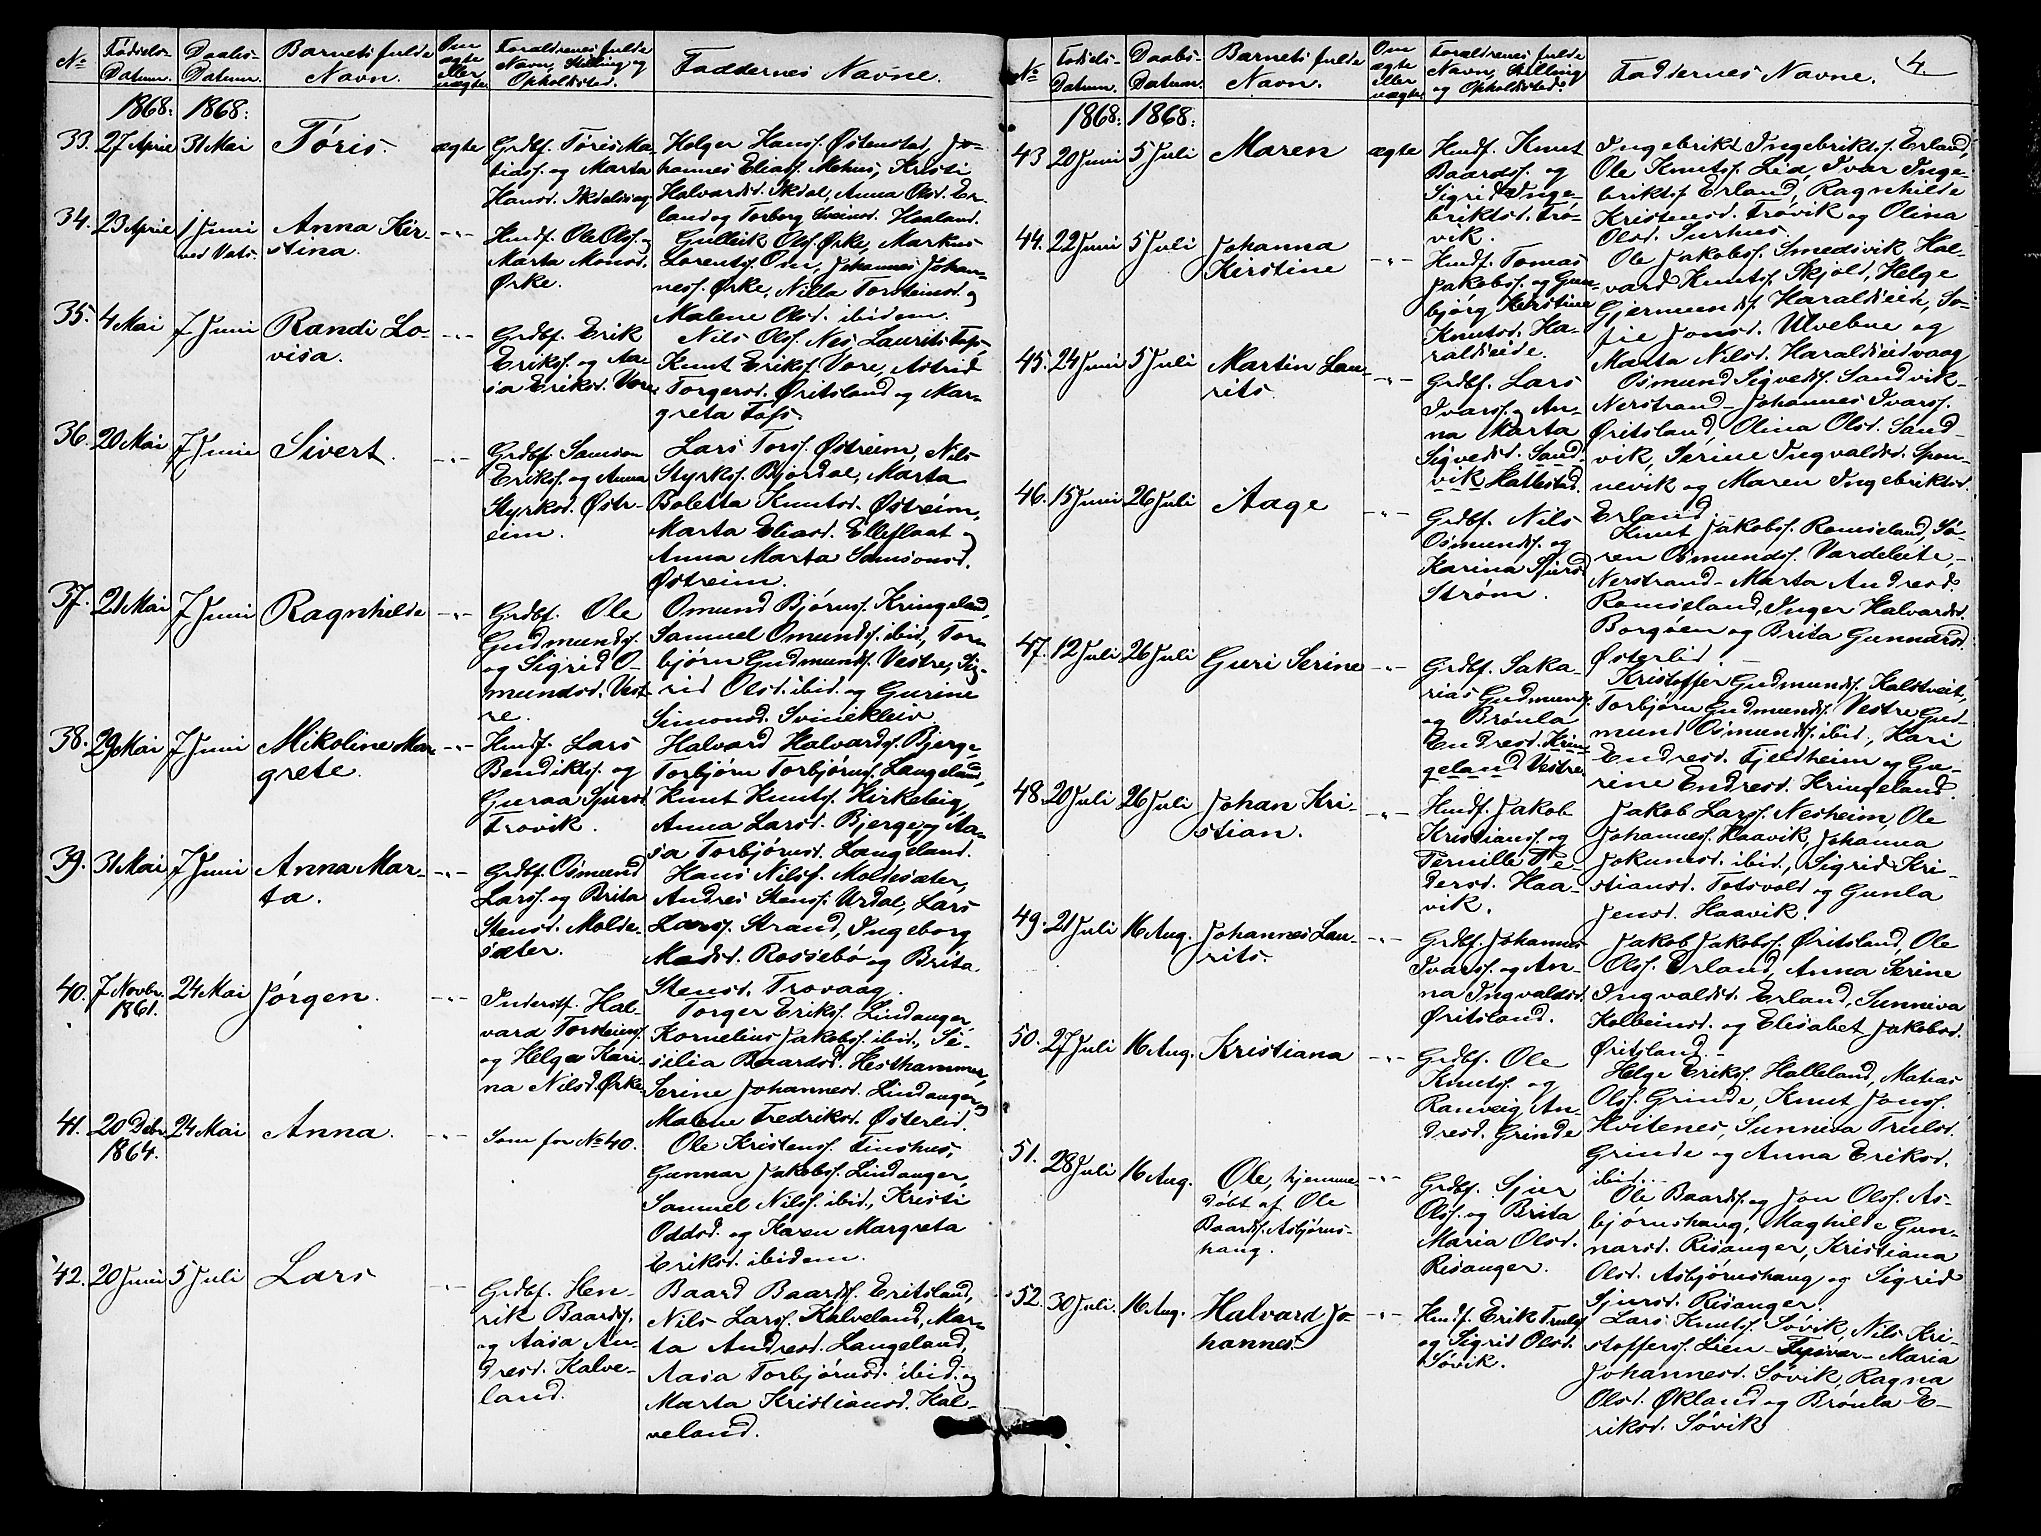 No Fødsels-Datum. Daabs-Datum. Barnets fulde Navn. Om ægte eller uægte Forældrenes fulde Navn, Stilling og Opholdssted. Faddernes Navne.
1868: 1868:
33. 27 April 31 Mai Føris. ægte
Grdbf. Føris Ma-
tiass. og Marta
Hansd. Ikdalsvag
Holger Hanss. Østenstad, Jo-
hannes Eliass. Mehus, Kristi
Halvardsd. Ikdal, Anna Olsd. Er-
land og Torborg Sveinsd. Haaland.
34. 23 April 1 Juni
ved Vats.
Anna Kir-
stina.
-"-
Hmdf. Ole Olss. og
Marta Monsd.
Ørke.
Gulleik Olss. Ørke, Markus
Lorentss. Om, Johannes Johan-
ness. Ørke, Nilla Torsteinsd. og
Malene Olsd. ibidem.
35. 4 Mai 7 Juni Randi Lo-
visa.
-"-
Grdbf. Erik
Erikss. og Aa-
sa Eriksd. Vore
Nils Olss. Nes, Laurits Fafs,
Knut Erikss. Vore, Astrid
Torgersd. Øritsland og Mar-
greta Fafs.
36. 20 Mai 7 Juni Sivert. -"-
Grdbf. Samson
Erikss. og Anna
Styrksd. Østr-
eim.
Lars Torss. Østreim, Nils
Styrkss. Bjordal, Marta
Boletta Knutsd. Østreim,
Marta Eliasd. Elleflaat og
Anna Marta Samsonsd.
Østreim.
37. 21 Mai 7 Juni Ragnhilde -"-
Grdbf. Ole
Gudmundss.
og Sigrid O-
mundsd. Vest-
re.
Omund Bjørnss. Kringeland,
Samuel Omundss. ibid., Tor-
bjørn Gudmundss. Vestre, Sig-
rid Olsd. ibid. og Gurine
Simonsd. Svinekleiv.
38. 29 Mai 7 Juni Mikoline Mar-
grete.
-"-
Hmdf. Lars
Bendikss. og
Guraa Sjursd.
Trovik.
Halvard Halvardss. Bjerge,
Torbjørn Torbjørnss. Langeland,
Knut Knutss. Kirkeleig,
Anna Larsd. Bjerge og Aa-
sa Torbjørnsd. Langeland.
39. 31 Mai 7 Juni Anna Mar-
ta.
-"-
Grdbf. Osmund
Larss. og Brita
Stensd. Molde-
sæter.
Hans Nilss. Moldesæter,
Andres Stenss. Urdal, Lars
Larss. Strand, Ingeborg
Madsd. Rossebø og Brita
Stensd. Trovaag.
40. 7 Novbr.
1861.
24 Mai Jørgen. -"-
Inderstf. Hal-
vard Torsteinss.
og Helga Kari-
na Nilsd. Ørke
Torger Erikss. Lindanger,
Kornelius Jakobss. ibid., Se-
silia Baardsd. Hesthammer,
Serine Johannesd. Lindanger og
Malene Fredriksd. Østerlid.
41. 20 Debr.
1864.
24 Mai Anna. -"-
Som for No 40.
Ole Kristenss. Tinshus,
Gunnar Jakobss. Lindanger,
Samuel Nilss. ibid., Kristi
Oddsd. og Karen Margreta
Eriksd. ibidem.
42. 20 Juni 5 Juli Lars -"-
Grdbf. Hen-
rik Baardss.
og Aasa An-
dresd. Kalve-
land.
Baard Baardss. Eritsland,
Nils Larss. Kalveland, Mar-
ta Andresd. Langeland,
Aasa Torbjørnsd. ibid. og
Marta Kristiansd. Kal-
veland.
No Fødsels-Datum. Daabs-Datum. Barnets fulde Navn. Om ægte eller uægte Forældrenes fulde Navn, Stilling og Opholdssted. Faddernes Navne. 4.
1868: 1868:
43 20 Juni 5 Juli Maren ægte
Hmdf. Knut
Baardss. og
Sigrid Inge-
briktsd. Trø-
vik.
Ingebrikt Ingebriktss. Erland,
Ole Knutss. Lid, Ivar Inge-
briktss. Erland, Ragnhilde
Kristensd. Trøvik og Olina
Olsd. Surhus.
44. 22 Juni 5 Juli Johanna
Kirstine
-"-
Hmdf. Tomas
Jakobss. og Gun-
bjørg Kerstine
Knutsd. Ha-
raldseide.
Ole Jakobss. Smedsvik, Hal-
vard Knutss. Skjold, Helge
Gjermundss. Haraldseide, So-
fie Jonsd. Ulvebne og
Marta Nilsd. Haraldseidvaag
45. 24 Juni 5 Juli Martin Lau-
rits.
-"-
Grdbf. Lars
Ivarss. og An-
na Marta
Sigvedsd. Sand-
vik Hattestad.
Osmund Sigvedss. Sandvik-
Nerstrand- Johannes Ivarss.
Øritsland, Olina Olsd. Sand-
vik, Serine Ingvaldsd. Spon-
nevik og Maren Ingebriktsd.
Erland.
46. 15 Juni 26 Juli Aage -"-
Grdbf. Nils
Osmundss. og
Karina Sjursd.
Strøm.
Knut Jakobss. Ramseland, Sø-
ren Osmundss. Vardeleite,-
Nerstrand- Marta Andresd.
Ramseland, Inger Halvardsd.
Borgøen og Brita Gunnarsd.
Østerlid
47. 12 Juli 26 Juli Guri Serine -"-
Grdbf. Saka-
rias Gudmunds.
og Brønla
Endresd. Krin-
geland Vestre.
Kristoffer Gudmundss. Kalstveit,
Torbjørn Gudmundss. Vestre, Gud-
mund Osmundss. ibid., Kari
Endresd. Fjeldheim og Gu-
rine Endresd. Kringeland.
48. 20 Juli 26 Juli Johan Kri-
stian.
-"-
Hmdf. Jakob
Kristianss. og
Pernille Pe-
dersd. Haa-
vik.
Jakob Larss. Nesheim, Ole
Johanness. Haavik, Johanna
Jokumsd. ibid., Sigrid Kri-
stiansd. Totsvold og Gunla
Jensd. Haavik.
49. 21 Juli 16 Aug. Johannes Lau-
rits.
-"-
Grdbf. Johannes
Ivarss. og An-
na Ingvaldsd.
Øritsland.
Jakob Jakobss. Øritsland, Ole
Olss. Erland, Anna Serine
Ingvaldsd. Erland, Sunniva
Kolbeinsd. og Elisabet Jakobsd.
Øritsland.
50. 27 Juli 16 Aug. Kristiana -"-
Grdbf. Ole
Knutss. og
Ranveig An-
dresd. Grinde
Helge Erikss. Halleland, Matias
Olss. Grinde, Knut Jonss.
Hvitenes, Sunniva Trulsd.
Grinde og Anna Eriksd.
ibid.
51. 28 Juli 16 Aug. Ole, hjemme
døbt af Ole
Baardss. Asbjørns-
haug.
-"-
Grdbf. Sjur
Olss. og Brita
Maria Olsd.
Risanger.
Ole Baardss. og Jon Olss. As-
bjørnshaug, Maghilde Gun-
narsd. Risanger, Kristiana
Olsd. Asbjørnshaug og Sigrid
Sjursd. Risanger.
52. 30 Juli. 16 Aug. Halvard Jo-
hannes.
-"-
Hmdf. Erik Trulss.
og Sigrid Olsd.
Søvik.
Lars Knutss. Søvik, Nils Kri-
stofferss. Lien- Tysvær- Maria
Johannesd. Søvik, Ragna
Olsd. Økland og Brønla E-
riksd. Søvik